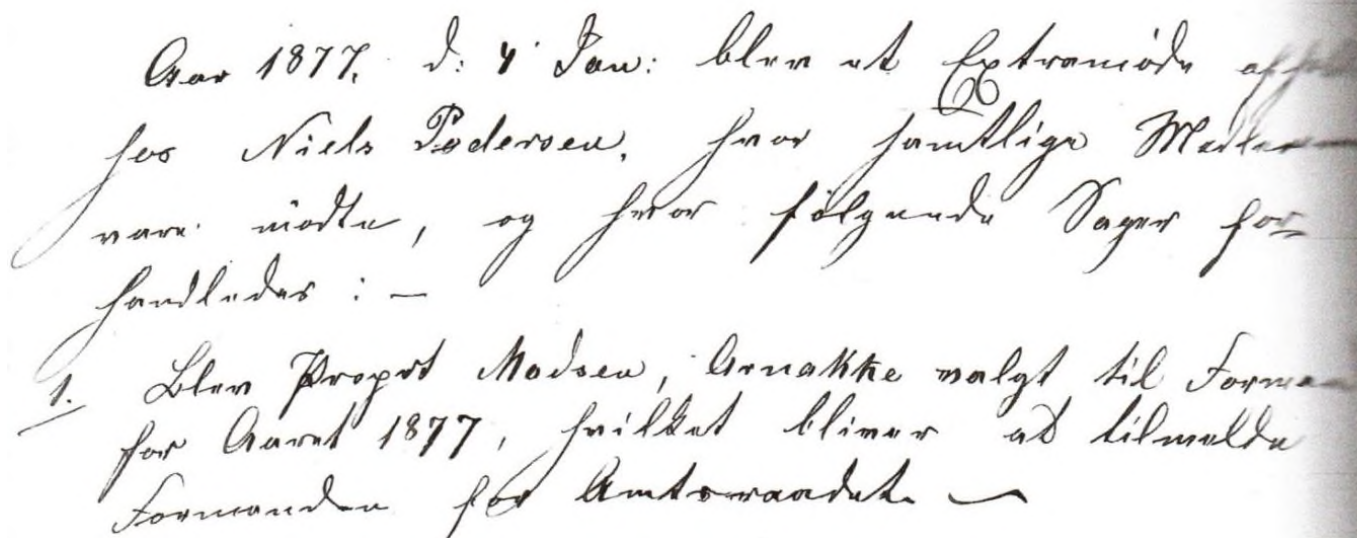 Aar 1877. d: 4 Jan: blev et Extramöde
hos Niels Pedersen, hvor samtlige
vare mödte, og hvor fölgende Sager for=
handledes : —
1. Blev Propr̲t Madsen, Arnakke valgt til
for Aaret 1877, hvilket bliver at tilmelde
Formanden for Amtsraadet. —